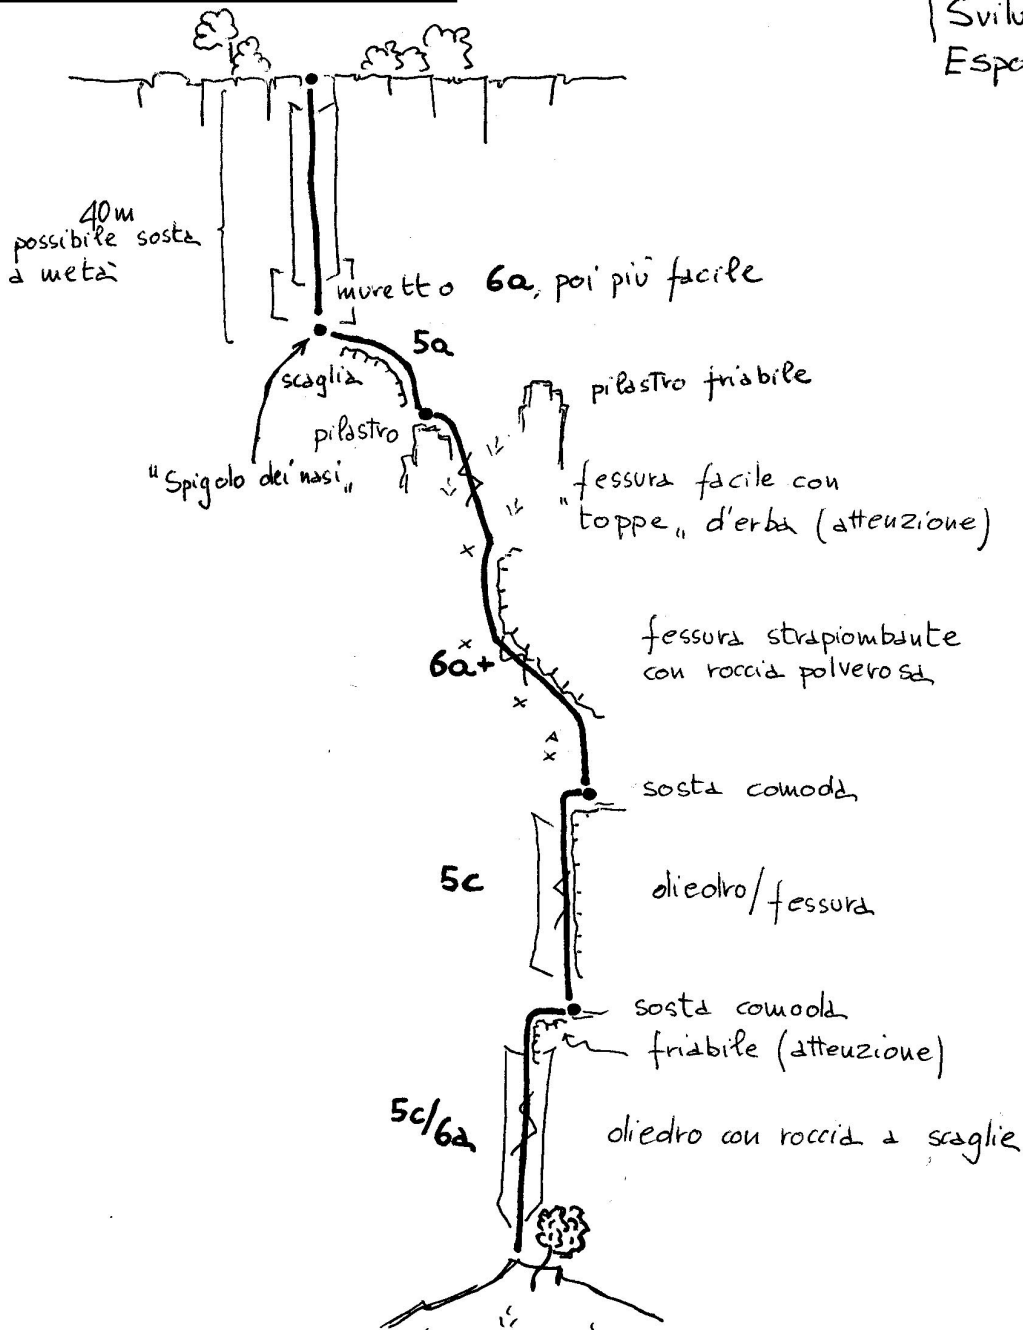 Svilu
Espo
40m
possibile sosta
a metà
muretto 6a, poi più facile
5a
scaglia
pilastro friabile
pilastro
"Spigolo dei nasi"
fessura facile con
"toppe" d'erba (attenzione)
fessura strapiombante
con roccia polverosa
6a+
sosta comoda
5c
diedro/fessura
sosta comoda
friabile (attenzione)
5c/6a
diedro con roccia a scaglie